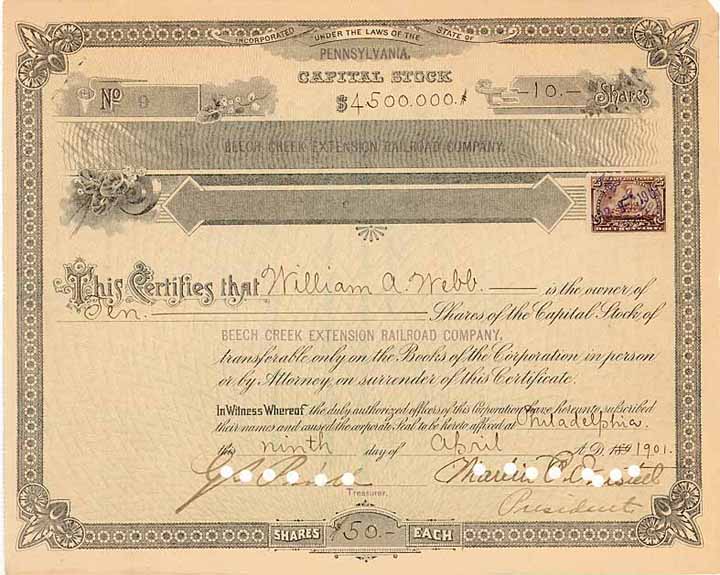 INCORPORATED UNDER THE LAWS OF THE STATE OF
PENNSYLVANIA.
CAPITAL STOCK
$4,500.000.
No 9
-10.- Shares
BEECH CREEK EXTENSION RAILROAD COMPANY.
This Certifies that William A. Webb is the owner of
Ten. Shares of the Capital Stock of
BEECH CREEK EXTENSION RAILROAD COMPANY.
transferable only on the Books of the Corporation in person
or by Attorney on surrender of this Certificate.
In Witness Whereof the duly authorized officers of this Corporation have hereunto subscribed
their names and caused the corporate Seal to be hereto affixed at Philadelphia.
this ninth day of April A.D. 1901.
Treasurer.
President
SHARES $50.- EACH